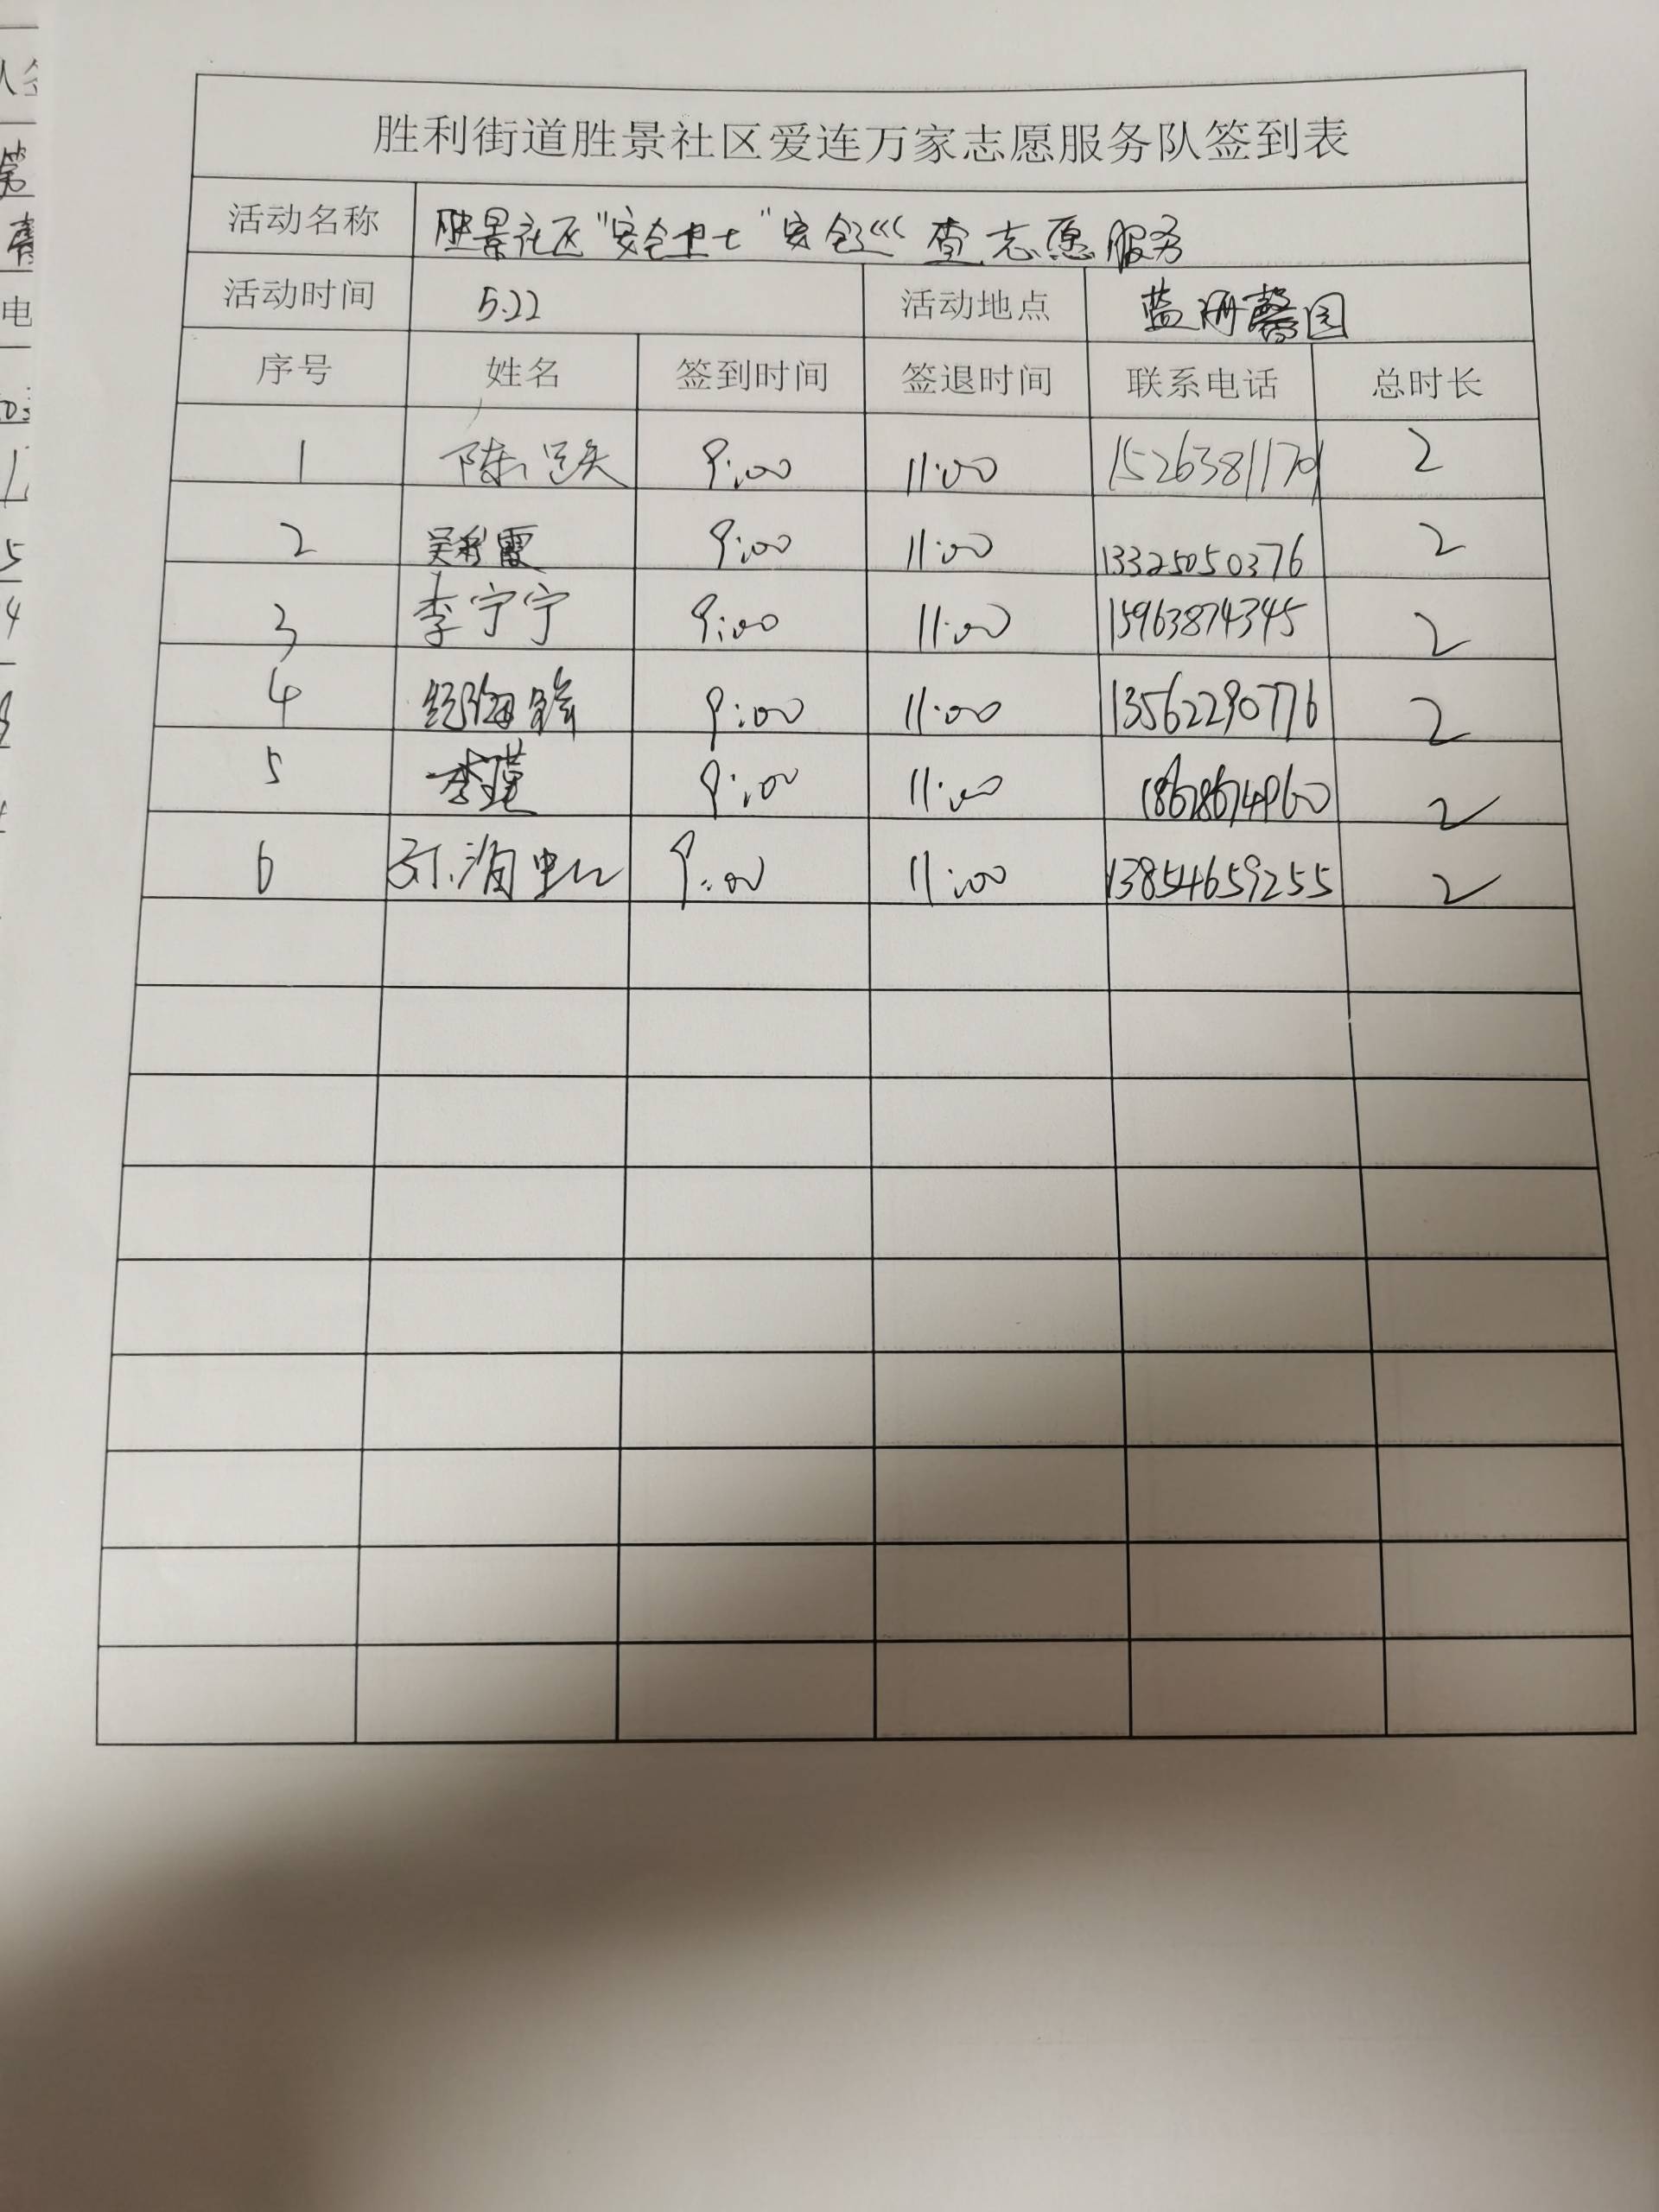 胜利街道胜景社区爱连万家志愿服务队签到表
活动名称 胜景社区"安全卫士"安全巡查志愿服务
活动时间 5.22 活动地点 蓝湖馨园
序号 姓名 签到时间 签退时间 联系电话 总时长
1 陈 9:00 11:00 2
2 吴彩霞 9:00 11:00 13325050376 2
3 李宁宁 9:00 11:00 15963874345 2
4 9:00 11:00 13562290776 2
5 李瑾 9:00 11:00 18678674960 2
6 孙洵 9:00 11:00 13854659255 2